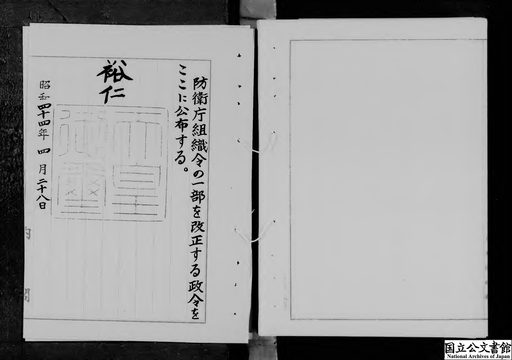 防衛庁組織令の一部を改正する政令を
ここに公布する。
裕仁
天皇
御璽
昭和四十四年四月二十八日
国立公文書館
National Archives of Japan